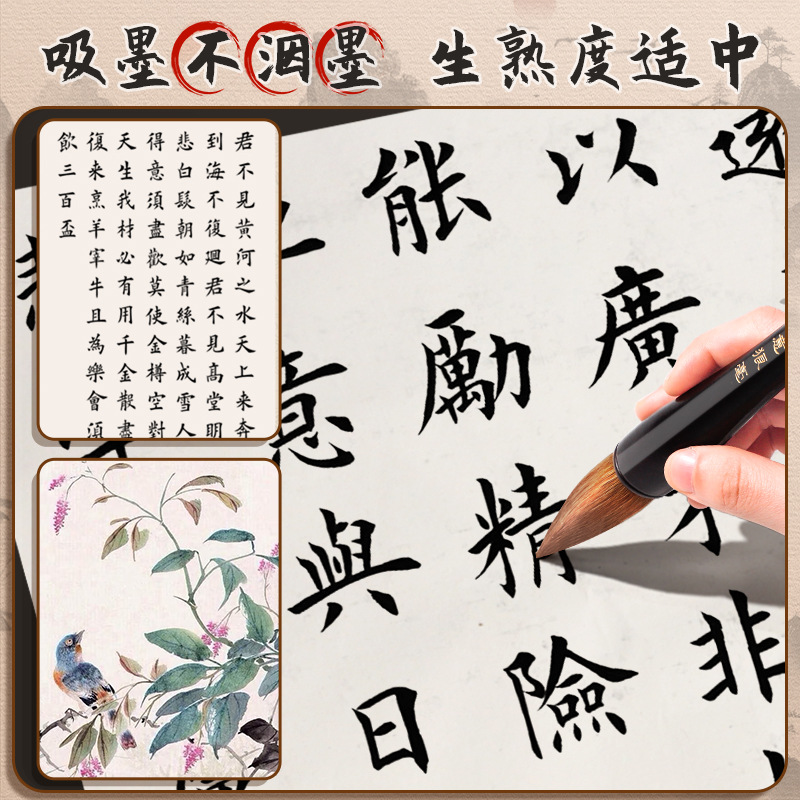 吸墨不洇墨 生熟度适中
君不見黄河之水天上来奔
到海不復廻君不見高堂明
悲白髮朝如青絲暮成雪人
得意須盡歡莫使金樽空對
天生我材必有用千金散盡
復来烹羊宰牛且為樂會湏
飲三百盃
以廣才非
能勵精險
意與日